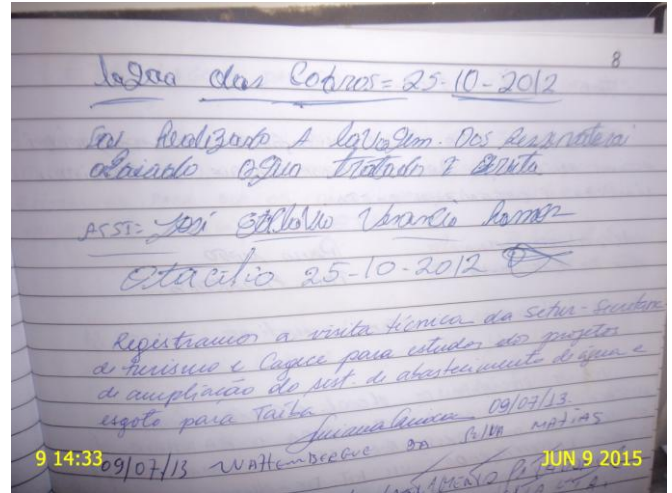 8
lagoa das Cobras = 25-10-2012
Foi Realizado A lavagem. Dos
água tratada e Bruta
ASST= José Otacílio Venancio Ramos
Otacílio 25-10-2012
Registramos a visita técnica da Setur-Secretaria
de turismo e Cagece para estudos dos projetos
de ampliação do sist. de abastecimento de água e
esgoto para Taíba
09/07/13.
09/07/13 WATTEMBERGUE DA SILVA MATIAS
9 14:33
JUN 9 2015